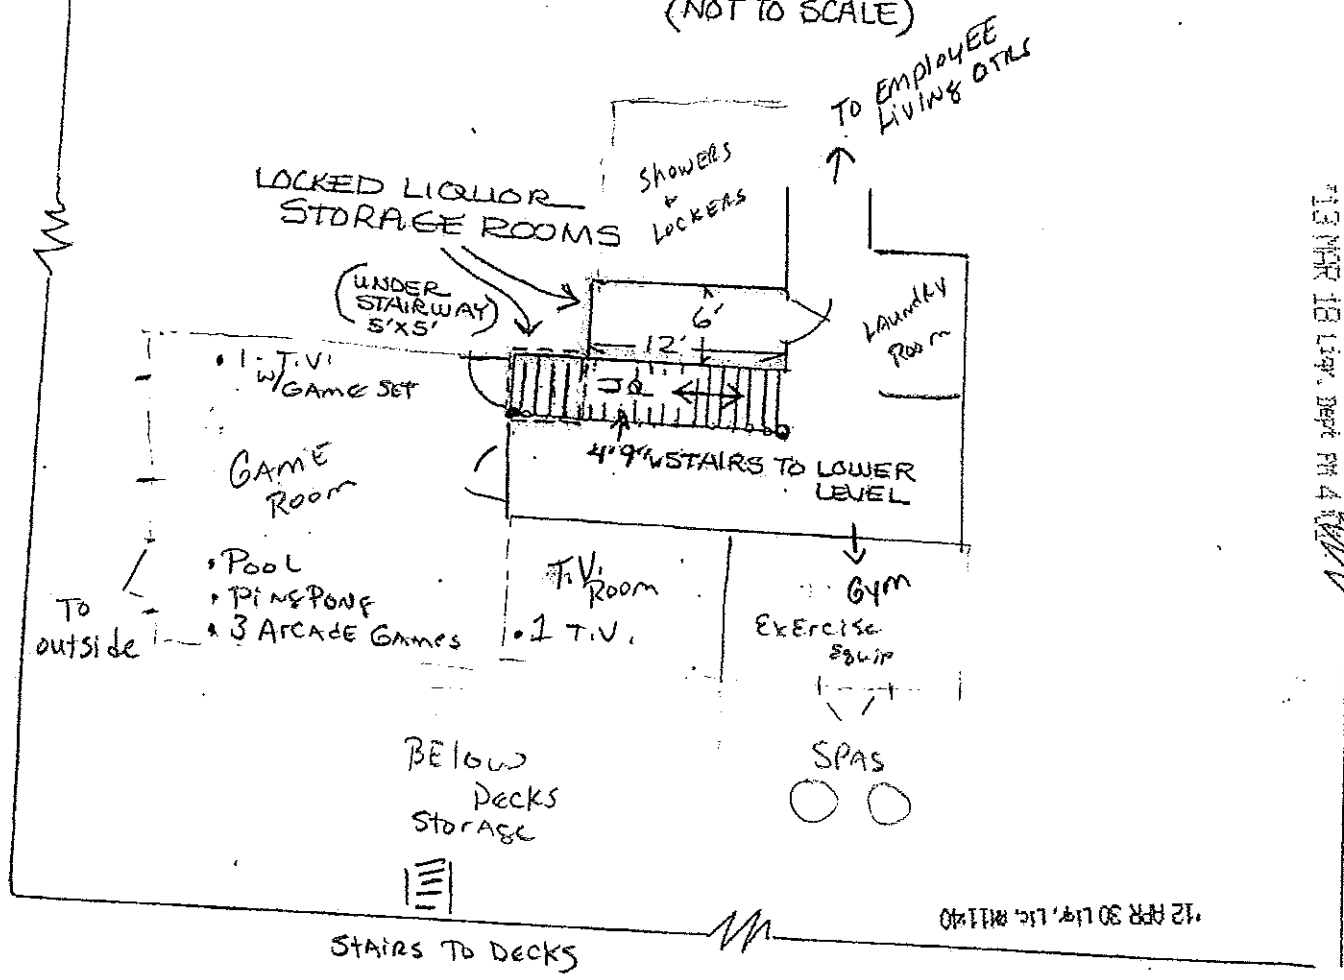 (NOT TO SCALE)
TO EMPLOYEE
LIVING QTRS
SHOWERS
&
LOCKERS
LOCKED LIQUOR
STORAGE ROOMS
(UNDER
STAIRWAY)
5'X5'
6'
12'
LAUNDRY
ROOM
• 1 - T.V.
w/GAME SET
GAME
ROOM
4'9"w STAIRS TO LOWER
LEVEL
• POOL
• PING PONG
• 3 ARCADE GAMES
TO
outside
T.V.
Room
• 1 T.V.
Gym
Exercise
Equip
BELOW
DECKS
Storage
SPAS
STAIRS TO DECKS
'13 MAR 18 Liqr. Dept PM 4
'12 APR 30 Liqr. Lic. AM 11:40